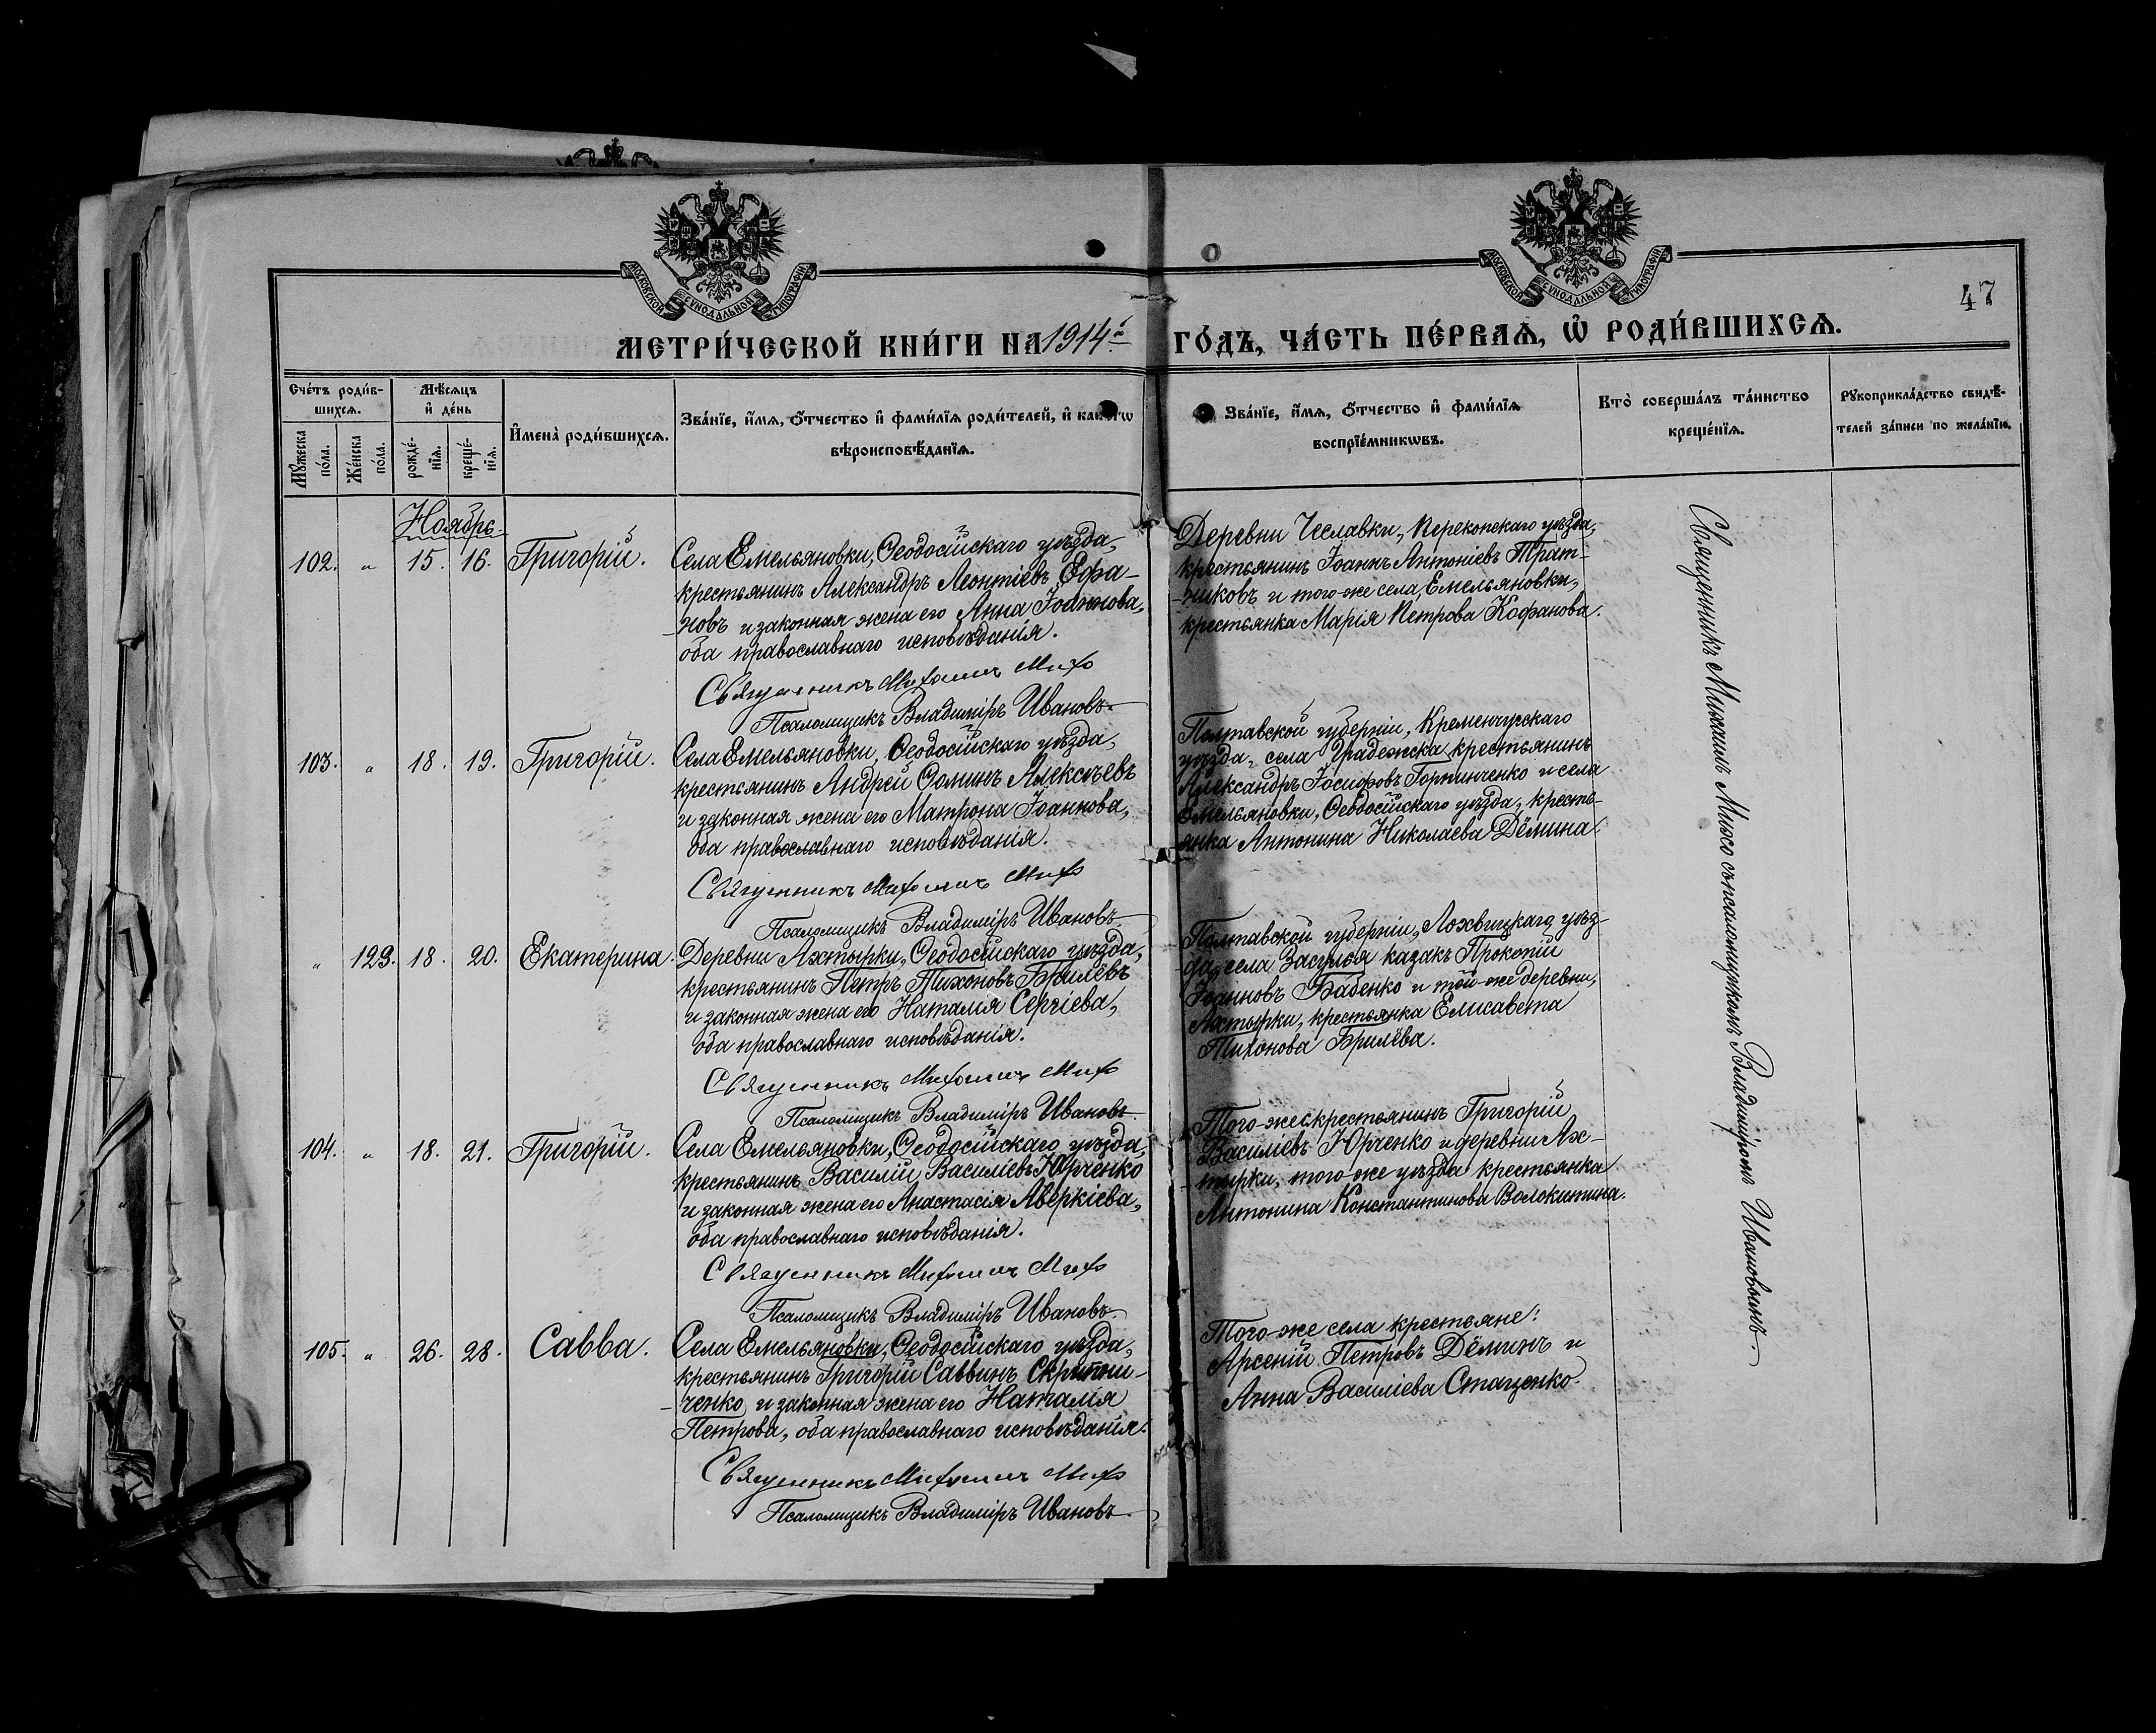 МОСКОВСКОЙ СѴНОДАЛЬНОЙ ТИПОГРАФІИ
МОСКОВСКОЙ СѴНОДАЛЬНОЙ ТИПОГРАФІИ
47
МЕТРИ́ЧЕСКОЙ КНИ́ГИ НА 1914й ГО́ДЪ, ЧА́СТЬ ПЕ́РВАѦ, Ѽ РОДИ́ВШИХСѦ.
Сче́тъ роди́в-
шихсѧ.
Мꙋжеска по́ла.
Же́нска по́ла.
Мѣ́сѧцъ
и҆ де́нь
рожде́-
нїѧ.
креще́-
нїѧ.
И҆мена̀ роди́вшихсѧ.
Зва́нїе, и҆́мѧ, ѻ҆́тчество и҆ фами́лїѧ роди́телей, и҆ како́гѡ
вѣроисповѣ́данїѧ.
Зва́нїе, и҆́мѧ, ѻ҆́тчество и҆ фами́лїѧ
воспрїе́мникѡвъ.
Кто̀ соверша́лъ та́инство
креще́нїѧ.
Рꙋкоприкла́дство свидѣ́-
телей за́писи по жела́нїю.
Ноябрь.
102. " 15. 16. Григорій.
Села Емельяновки, Ѳеодосійскаго уѣзда,
крестьянинъ Александръ Леонтіевъ Ефа-
-новъ и законная жена его Анна Іоаннова,
оба православнаго исповѣданія.
Священникъ Михаилъ Михо
Псаломщикъ Владиміръ Ивановъ
Деревни Чеславки, Перекопскаго уѣзда,
крестьянинъ Іоаннъ Антоніевъ Трат-
-никовъ и того-же села, Емельяновки,
крестьянка Марія Петрова Кофанова.
Священникъ Михаилъ Михо съ псаломщикомъ Владиміромъ Ивановымъ.
103. " 18. 19. Григорій.
Села Емельяновки, Ѳеодосійскаго уѣзда,
крестьянинъ Андрей Ѳоминъ Алексѣевъ
и законная жена его Матрона Іоаннова,
оба православнаго исповѣданія.
Священникъ Михаилъ Михо
Псаломщикъ Владиміръ Ивановъ
Полтавской губерніи, Кременчугскаго
уѣзда, села Градежска крестьянинъ
Александръ Іосифовъ и села
Емельяновки, Ѳеодосійскаго уѣзда, кресть-
янка Антонина Николаева Дёмина.
" 123. 18. 20. Екатерина.
Деревни Ахтырки, Ѳеодосійскаго уѣзда,
крестьянинъ Петръ Тихоновъ Брилёвъ
и законная жена его Наталія Сергіева,
оба православнаго исповѣданія.
Священникъ Михаилъ Михо
Псаломщикъ Владиміръ Ивановъ
Полтавской губерніи, Лохвицкаго уѣз-
-да, села Засулья казакъ Прокопій
Іоанновъ Бабенко и той-же деревни,
Ахтырки, крестьянка Елисавета
Тихонова Брилёва.
104. " 18. 21. Григорій.
Села Емельяновки, Ѳеодосійскаго уѣзда,
крестьянинъ Василій Василіевъ Юрченко
и законная жена его Анастасія Аверкіева,
оба православнаго исповѣданія.
Священникъ Михаилъ Михо
Псаломщикъ Владиміръ Ивановъ
Того-же с. крестьянинъ Григорій
Василіевъ Юрченко и деревни Ах-
-тырки, того-же уѣзда крестьянка
Антонина Константинова Волокитина.
105. " 26. 28. Савва.
Села Емельяновки, Ѳеодосійскаго уѣзда,
крестьянинъ Григорій Саввинъ Скрипни-
-ченко и законная жена его Наталія
Петрова, оба православнаго исповѣданія.
Священникъ Михаилъ Михо
Псаломщикъ Владиміръ Ивановъ
Того-же села крестьяне:
Арсеній Петровъ Дёминъ и
Анна Василіева Стаценко.